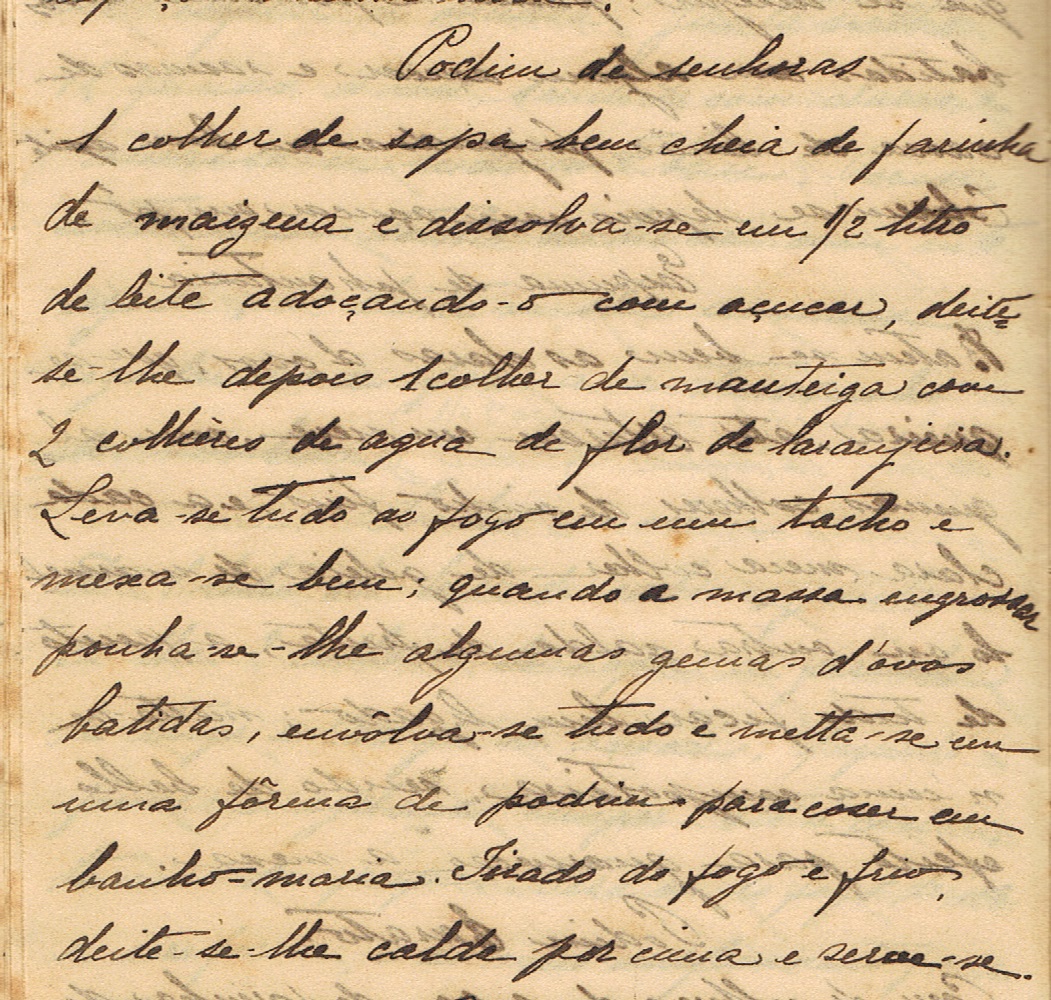 Podim de senhoras
1 colher de sopa bem cheia de farinha
de maizena e dissolva-se em 1/2 litro
de leite adoçando-o com açucar, deite=
se-lhe depois 1 colher de manteiga com
2 colhéres de agua de flor de laranjeira.
Leva-se tudo ao fogo em um tacho e
mexa-se bem; quando a massa engrossar
ponha-se-lhe algumas gemas d'ovos
batidas, envôlva-se tudo e metta-se em
uma fôrma de podim para coser em
banho=maria. Tirado do fogo e frio,
deite-se-lhe calda por cima e serve-se.